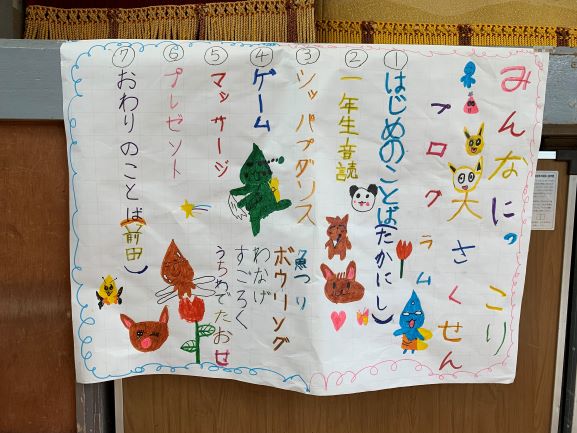 みんなにっこり
大さくせん
プログラム
① はじめのことば(たかにし)
② 一年生音読
③ シッパプダンス
④ ゲーム
魚つり
ボウリング
わなげ
すごろく
うちわでたおせ
⑤ マッサージ
⑥ プレゼント
⑦ おわりのことば(前田)